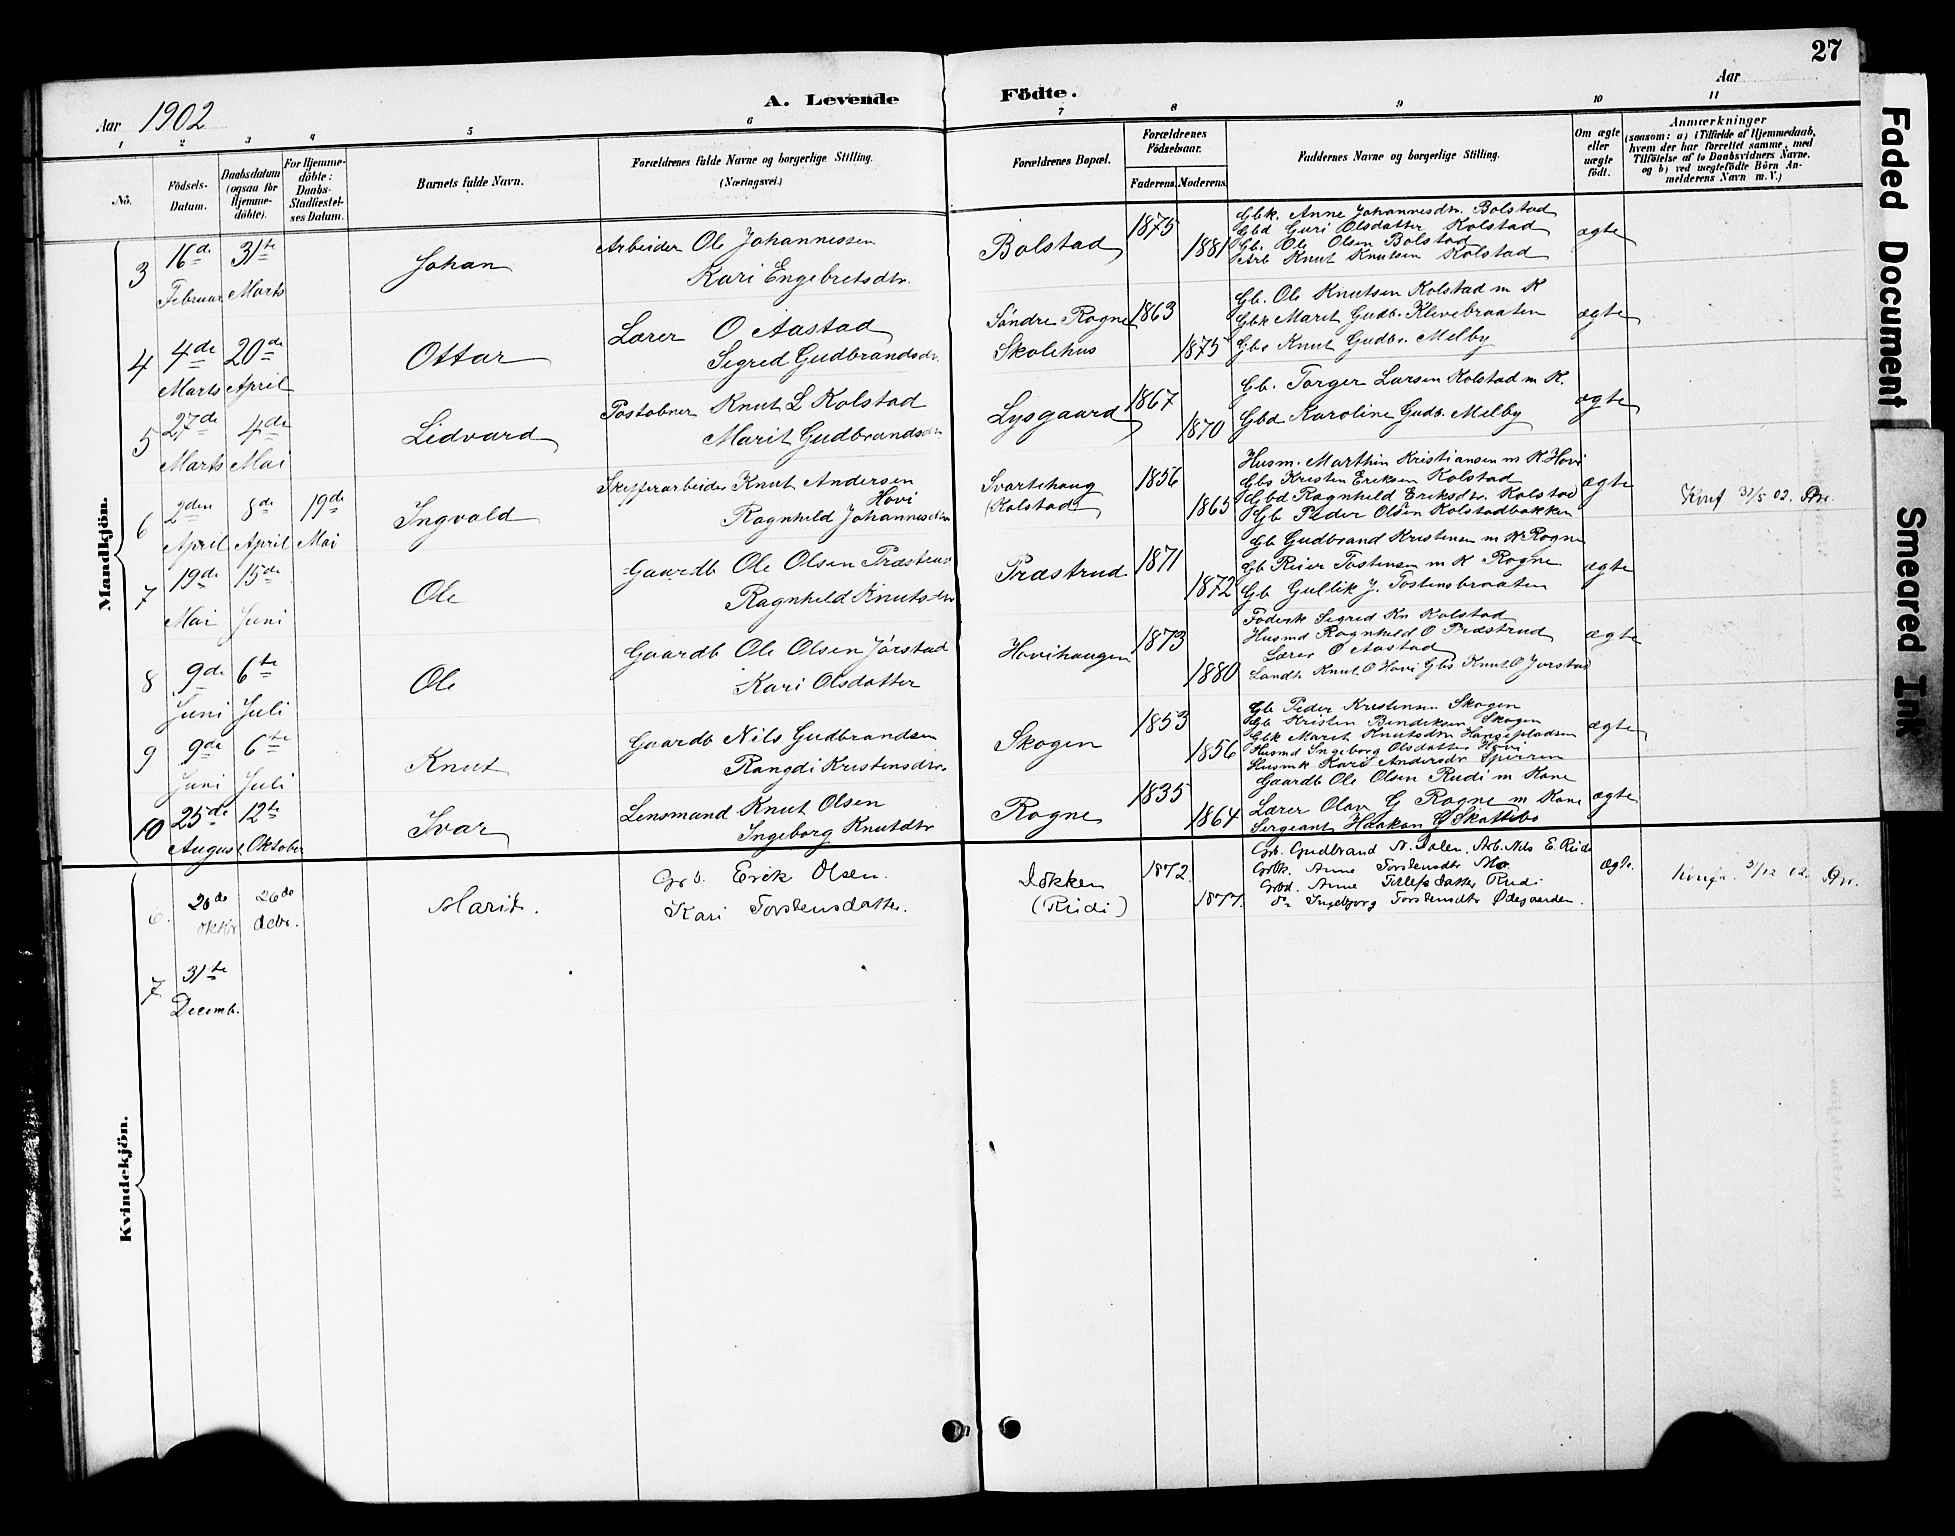 27
Aar 1902
A. Levende Födte.
Aar
1 2 3 4 5 6 7 8 9 10 11
Nô.
Födsels-Datum.
Daabsdatum (ogsaa for Hjemme-döbte).
For Hjemme-döbte: Daabs-Stadfæstel-ses Datum.
Barnets fulde Navn.
Forældrenes fulde Navne og borgerlige Stilling.
(Næringsvei.)
Forældrenes Bopæl.
Forældrenes Födselsaar.
Faderens. Moderens.
Faddernes Navne og borgerlige Stilling.
Om ægte eller uægte födt.
Anmærkninger
(saasom: a) i Tilfælde af Hjemmedaab,
hvem der har forrettet samme, med
Tilföielse af to Daabsvidners Navne.
og b) ved uægtefödte Börn An-
melderens Navn m. V.)
Mandkjön.
3 16de Februar 31te Marts Johan
Arbeider Ole Johannessen
Kari Engebretsdtr.
Bolstad 1875 1881
Gbk. Anne Johannesdtr. Bolstad
Gbd Guri Olsdatter Kolstad
Gb. Ole Olsen Bolstad
Arb Knut Knutsen Kolstad
ægte
4 4de Marts 20de April Ottar
Lærer O Aastad
Sigrid Gudbrandsdr.
Søndre Rogne Skolehus 1863 1875
Gb. Ole Knutsen Kolstad m K
Gbk Marit Gudb. Klevebraaten
Gbs Knut Gudbr. Melby
ægte
5 27de Marts 4de Mai Lidvard
Postobner Knut L Kolstad
Marit Gudbrandsdr
Lysgaard 1867 1870
Gb. Torger Larsen Kolstad m K.
Gbd Karoline Gudb. Melby
ægte
6 2den April 8de April 19de Mai Ingvald
Skiferarbeider Knut Andersen Hovi
Ragnhild Johannesdtr
Svartehaug (Kolstad) 1856 1865
Husm. Marthin Kristiansen m K Hovi
Gbs Kristen Eriksen Kolstad
Gbd Ragnhild Eriksdtr. Kolstad
Gb Peder Olsen Kolstadbakken
ægte
7 19de Mai 15de Juni Ole
Gaardb Ole Olsen Præstrud
Ragnhild Knutsdtr
Præstrud 1871 1872
Gb Gudbrand Kristensen m K Rogne
Gb Reier Tostensen m K Rogne
Gb Gullik J. Tostensbraaten
ægte
8 9de Juni 6te Juli Ole
Gaardb Ole Olsen Jørstad
Kari Olsdatter
Hovihaugen 1873 1880
Foderk Sigrid Kn Kolstad
Husmd Ragnhild O Præstrud
Lærer O Aastad
Landh Knut O Hovi Gbs Knut O Jorstad
ægte
9 9de Juni 6te Juli Knut
Gaardb Nils Gudbrandsen
Rangdi Kristensdtr.
Skogen 1853 1856
Gb Peder Kristensen Skogen
Gb Kristen Bendiksen Skogen
Gbk Marit Knutsdtr Haugepladsen
Husmd Ingeborg Olsdatter Hovi
Husmk Kari Andersdr Sperren
ægte
10 25de August 12te Oktober Ivar
Lensmand Knut Olsen
Ingeborg Knutsdtr
Rogne 1835 1864
Gaardb Ole Olsen Rudi m Kone
Lærer Olav G Rogne m Kone
Sergeant Haakon Ø Skattebo
ægte
Kvindekjön.
6. 26de Oktbr 26de Decbr. Marit.
Grb. Erik Olsen.
Kari Torstensdatter.
Løkken (Rudi) 1872. 1877.
Grb. Gudbrand N. Dalen. Arb. Nils E. Rudi
Grbk. Anne Torstensdtr Mo.
Grbd. Anne Tillefsdatter Rudi
do Ingeborg Torstensdtr Ødegaarden.
ægte.
7 31te Decemb.
Faded Document
Smeared Ink